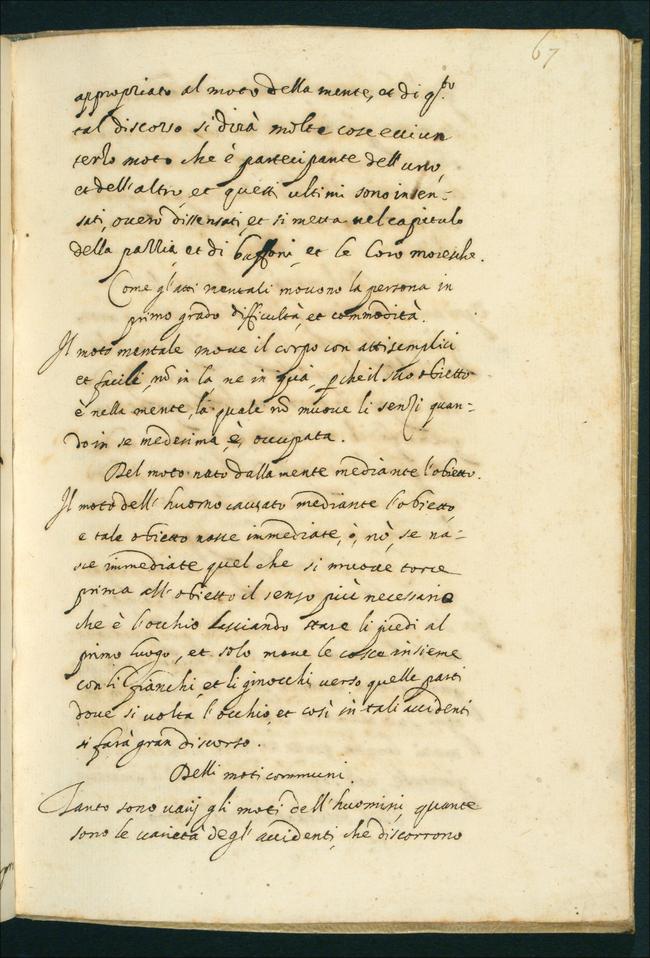 67
appropriato al moto della mente, et di q.to
tal discorso si dirà molte cose ecci un
terzo moto che è partecipante dell'uno,
et dell'altro, et questi ultimi sono insen-
sati, overo dissensati, et si metta nel capitulo
della pazzia, et di buffoni, et le loro moresche.
Come gl'atti mentali movono la persona in
primo grado difficultà, et commodità.
Il moto mentale move il corpo con atti semplici
et facili, nō in la, ne in quà, perche il suo obietto
è nella mente, la quale nō muove li sensi quan-
do in se medesima, è, occupata.
Del moto nato dalla mente mediante l'obietto.
Il moto dell'huomo causato mediante l'obietto,
e tale obietto nasce immediate, ò, nò, se na-
sce immediate quel che si muove torce
prima all'obietto il senso più necessario
che è l'occhio lasciando stare li piedi al
primo luogo, et solo move le cosce insieme
con li fianchi, et li ginocchi verso quelle parti
dove si volta l'occhio, et così in tali accidenti
si farà gran discorso.
Delli moti communi.
Tanto sono varij gli moti dell'huomini, quante
sono le varietà degl'accidenti, che discorrono